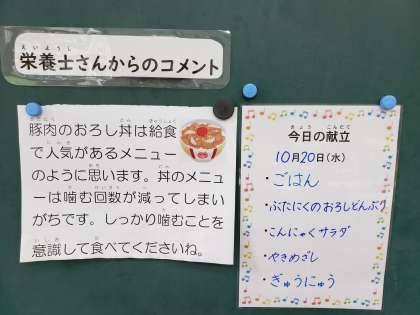 栄養士さんからのコメント
豚肉のおろし丼は給食
で人気があるメニュー
のように思います。丼のメニュ
ーは噛む回数が減ってしまい
がちです。しっかり噛むことを
意識して食べてくださいね。
今日の献立
10月20日(水)
・ごはん
・ぶたにくのおろしどんぶり
・こんにゃくサラダ
・やきめざし
・ぎゅうにゅう